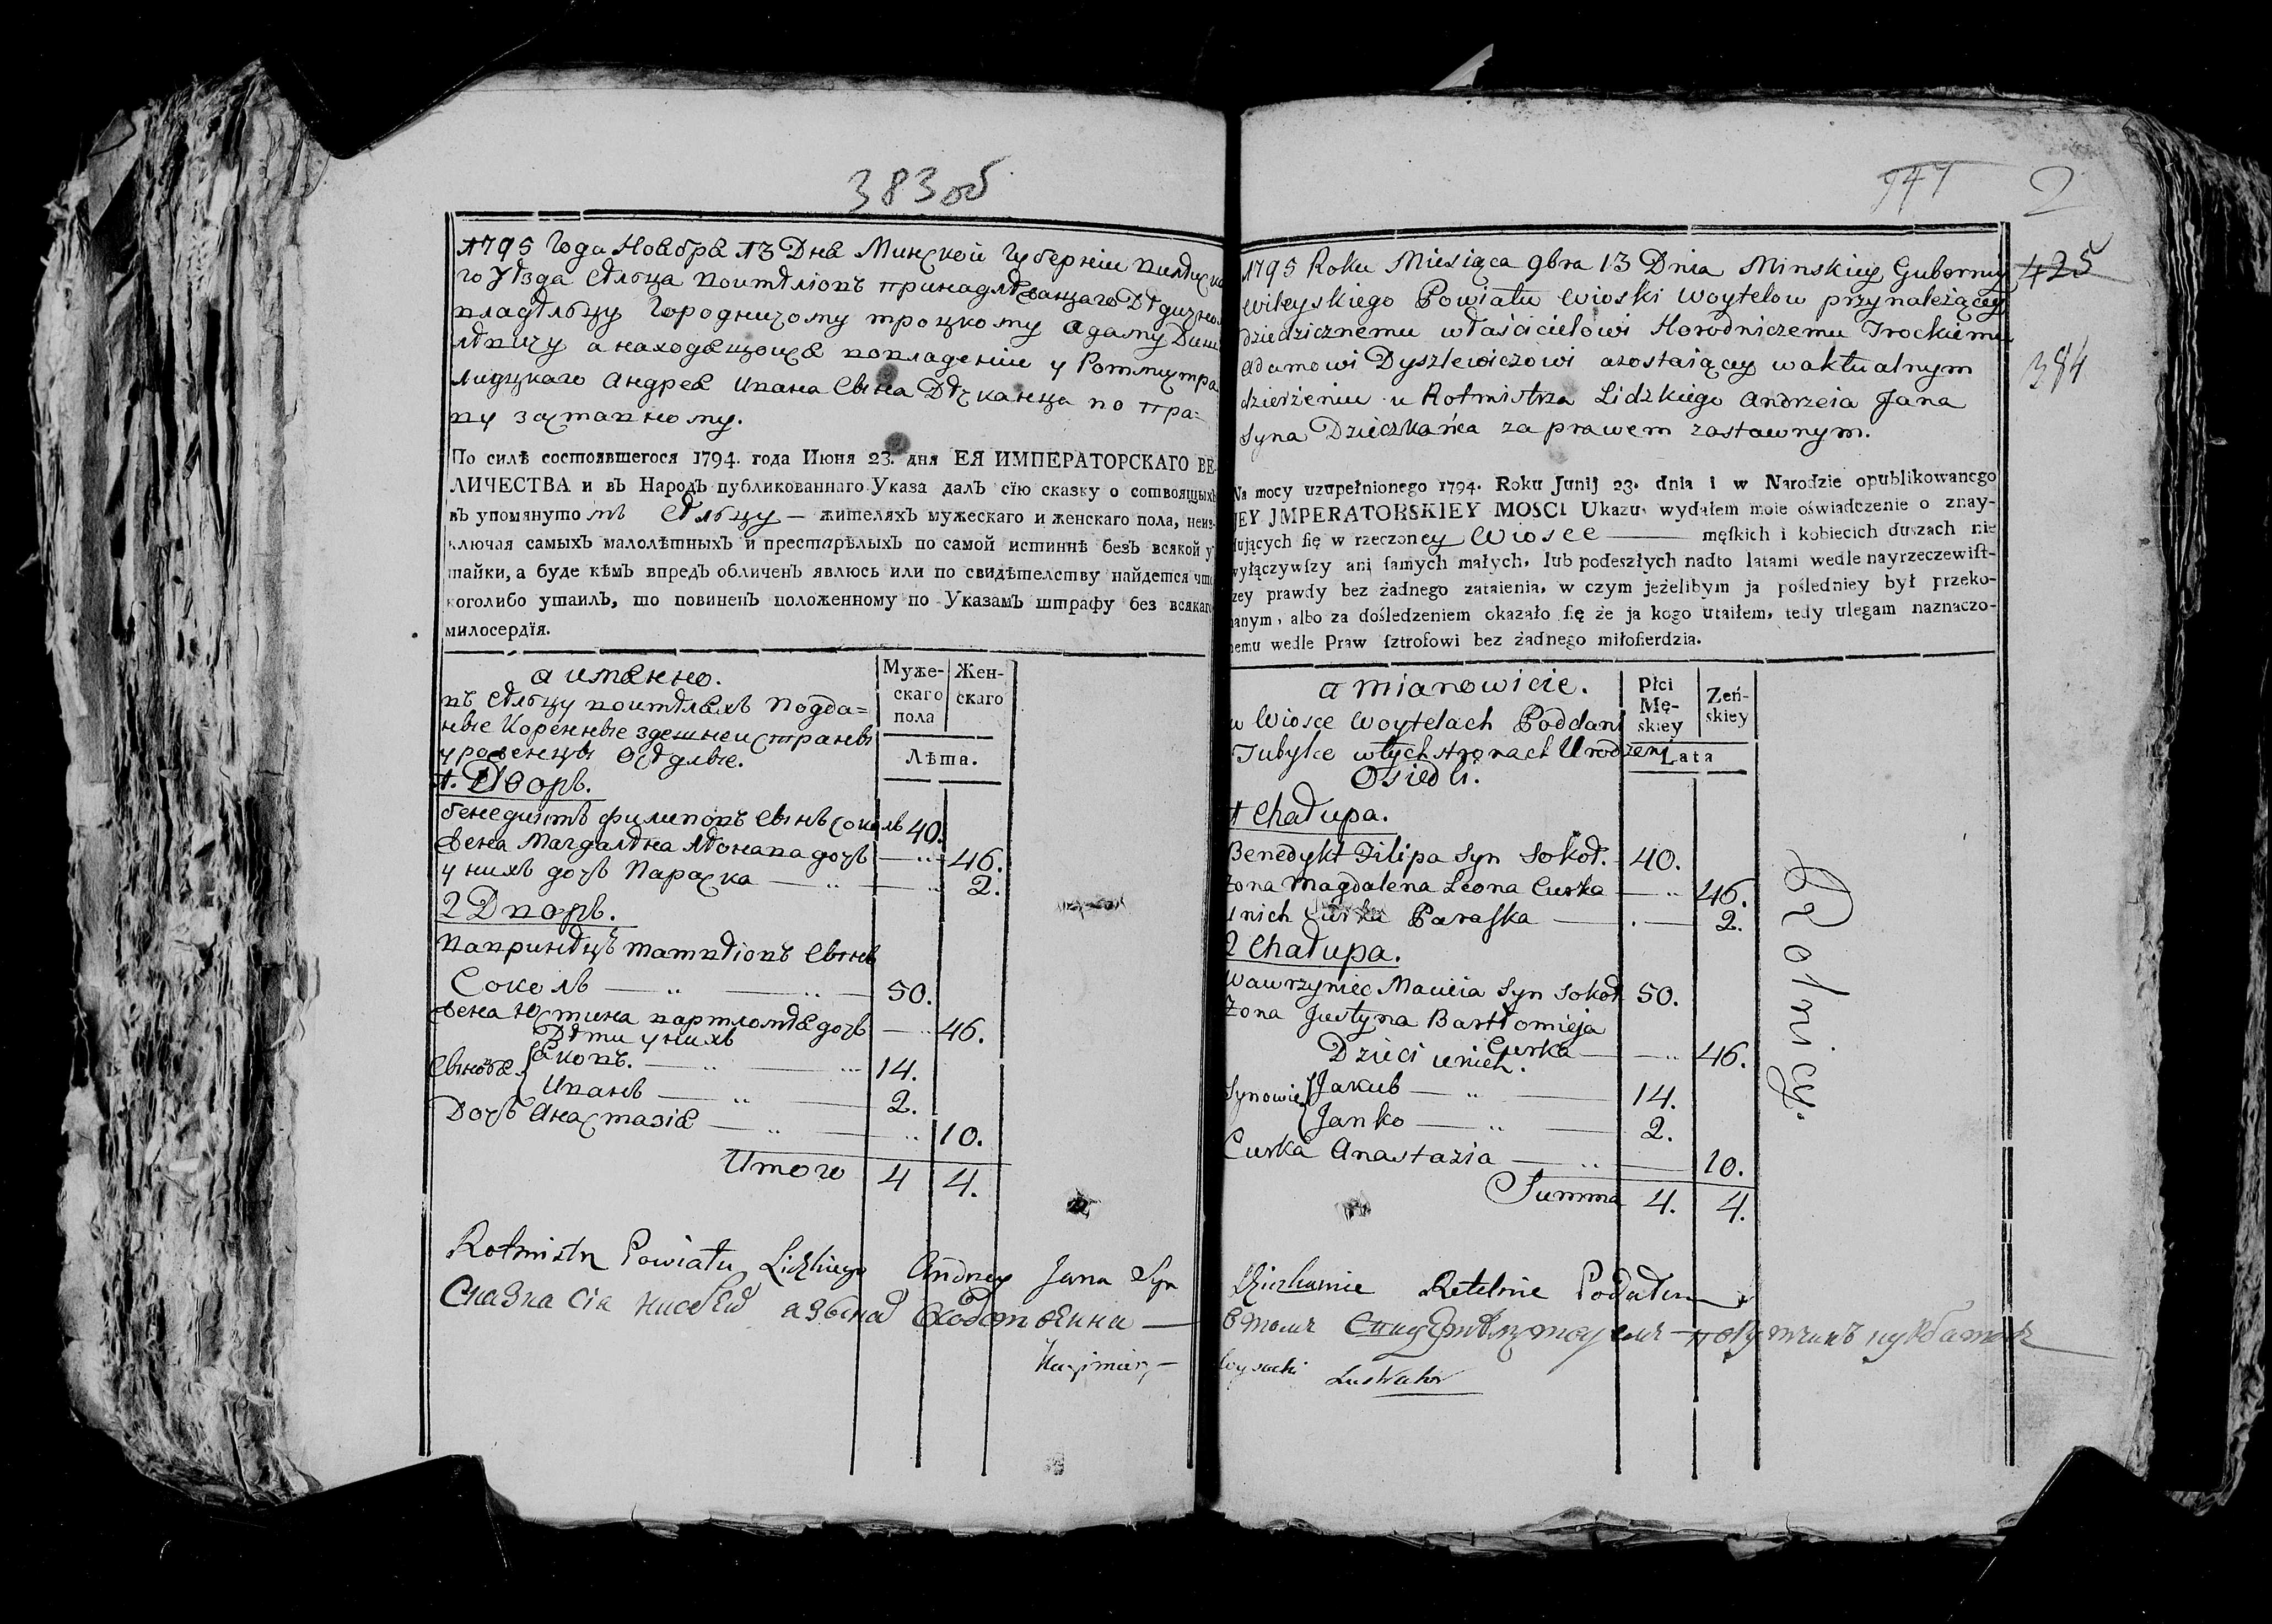 383 об
1795 Года Ноября 13 Дня Минской Губерніи Вилейска
го Уѣзда сѣльца Войтѣліовъ принадлѣжащаго Дѣдично
владѣльцу Городничому троцкому Адаму Дыш
лѣвичу а находящоися вовладеніи у Ротмистра
Лидзкаго Андрея Ивана сына Дѣчканца по пра-
ву заставному.
По силѣ состоявшегося 1794. года Июня 23. дня ЕЯ ИМПЕРАТОРСКАГО ВЕ-
ЛИЧЕСТВА и въ Народъ публикованнаго Указа далъ сїю сказку о сотвоящыхъ
въ упомянутомъ сѣльцу — жителяхъ мужескаго и женскаго пола, неиз-
ключая самыхъ малолѣтныхъ и престарѣлыхъ по самой истиннѣ безъ всякой у
тайки, а буде кѣмъ впредъ обличенъ явлюсь или по свидѣтелству найдется что
коголибо утаилъ, то повиненъ положенному по Указамъ штрафу без всякаго
милосердїя.
а имянно.
Муже-
скаго
пола
Жен-
скаго
Лѣта.
въ сѣльцу войтѣляхъ подда=
ные Коренные здешнеи страны
уроженцы осѣдлые.
1. Дворъ.
бенедиктъ филиповъ сынъ соколъ 40.
жена Магдалѣна лѣонава дочъ — 46.
у нихъ дочъ Параска — 2.
2 Дворъ.
вавринѣцъ матвѣіовъ сынъ
Соколъ — 50.
жена Юстина вартломѣя дочъ — 46.
Дѣти у нихъ
сыновья Яковъ. — 14.
Иванъ — 2.
Дочъ Анастазія — 10.
Итого 4 4.
Rotmistrz Powiatu Lidzkiego Andrzey Jana Syn
Сказка сія
Kazimierz —
2
425
384
1795 Roku Miesiąca 9bra 13 Dnia Minskiey Gubernii
Wileyskiego Powiatu wioski Woytelow przynależącey
dziedzicznemu właścicielowi Horodniczemu Trockiemu
Adamowi Dyszlewiczowi azostaiącey waktualnym
dzierżeniu u Rotmistrza Lidzkiego Andrzeia Jana
Syna Dzieczkańca za prawem zastawnym.
Na mocy uzupełnionego 1794. Roku Junij 23. dnia i w Narodzie opublikowanego
JEY JMPERATORSKIEY MOSCI Ukazu, wydałem moie oświadczenie o znay-
dujących ſię w rzeczoney Wiosce — męſkich i kobiecich duszach nie
wyłączywſzy ani ſamych małych, lub podeszłych nadto latami wedle nayrzeczewiſt-
ſzey prawdy bez żadnego zataienia, w czym jeżelibym ja pośledniey był przeko-
nanym, albo za dośledzeniem okazało ſię że ja kogo utaiłem, tedy ulegam naznaczo-
nemu wedle Praw ſztrofowi bez żadnego miłoſierdzia.
a mianowicie.
Płci
Mę-
skiey
Zeń-
skiey
Lata
w Wiosce Woytelach Poddani
Tubylce wtych stronach Urodzeni
Osiedli.
1 Chałupa.
Benedykt Filipa syn Sokoł. 40.
Zona Magdalena Leona Curka — 46.
Unich Curka Paraſka — 2.
2 Chałupa.
Wawrzyniec Macieia Syn Sokoł 50.
Zona Justyna Bartłomieja
Curka — 46.
Dzieci unich.
Synowie Jakub — 14.
Janko — 2.
Curka Anastazia — 10.
Summa 4. 4.
Rolnicy.
Retelnie Podałem
Wysocki Lustrator